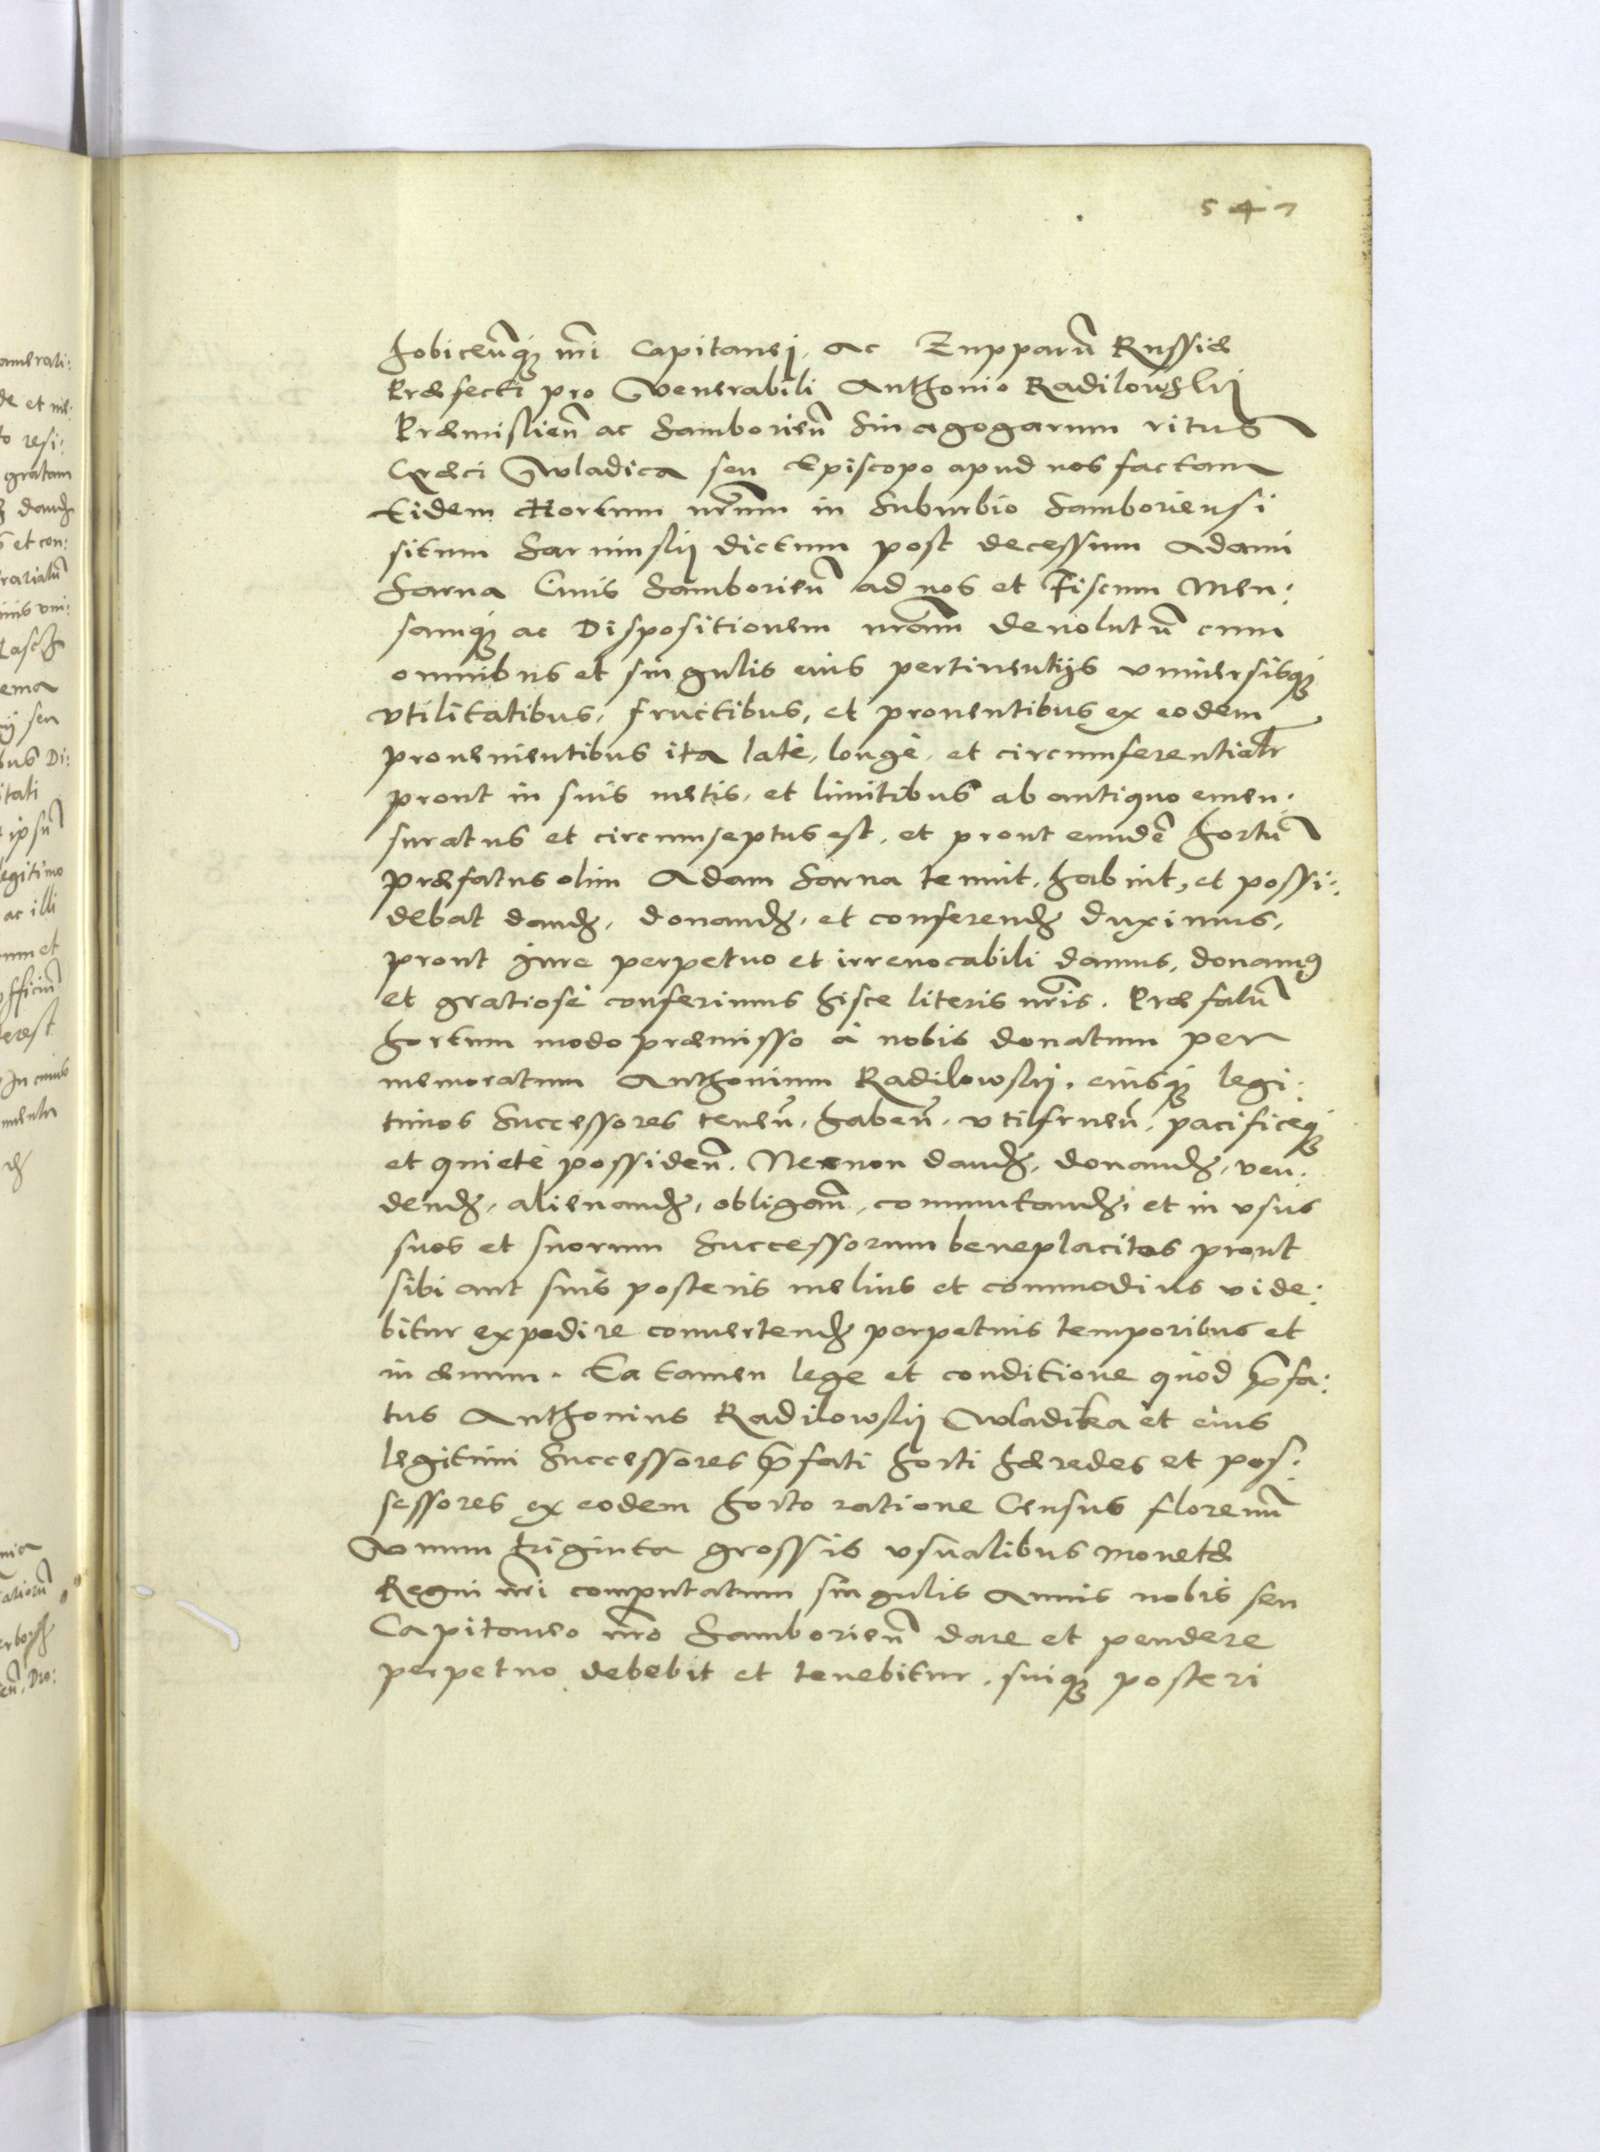 547
hobiceñq; nr̃i Capitanej, ac Zupparũ Russiæ
Præfecti pro Venerabili Anthonio Radilowskij
Præmislieñ ac Samborieñ Sinagogarum ritus
Græci Wladica seu Episcopo apud nos factam
Eidem Hortum nr̃um in Suburbio Samboriensi
situm Sarninskij dictum post decessum Adami
Sarna Ciuis Samborieñ ad nos et Fiscum Men:
samq; ac Dispositionem nr̃am deuolutũ cum
omnibus et singulis eius pertinentijs vniuersisq;
vtilitatibus, fructibus, et prouentibus ex eodem
prouenientibus ita latè, longè, et circumferentialr̃
prout in suis metis, et limitibus ab antiquo emen:
suratus et circumseptus est, et prout eundẽ hortũ
præfatus olim Adam Sarna tenuit, habuit, et possi:
debat dand, donand, et conferend duximus,
prout iure perpetuo et irreuocabili damus, donamus
et gratiosè conferimus hisce literis nr̃is. Præfatũ
hortum modo præmisso à nobis donatum per
memoratum Anthonium Radilowskij, eiusq; legi:
timos Successores teneñ, habeñ, vtifrueñ, pacificeq;
et quietè possideñ. Necnon dand, donand, ven:
dend, alienand, obligañ, commutand, et in vsus
suos et suorum Successorum beneplacitos prout
sibi aut suis posteris melius et commodius vide:
bitur expedire conuertend perpetuis temporibus et
in æuum. Ea tamen lege et conditione quòd p̃fa:
tus Anthonius Radilowskij Wladika et eius
legitimi Successores p̃fati horti hæredes et pos:
sessores ex eodem horto ratione Census florenũ
Vnum triginta grossis vsualibus monetæ
Regni nr̃i computatum singulis Annis nobis seu
Capitaneo nr̃o Samborieñ dare et pendere
perpetuo debebit et tenebitur, suiq; posteri